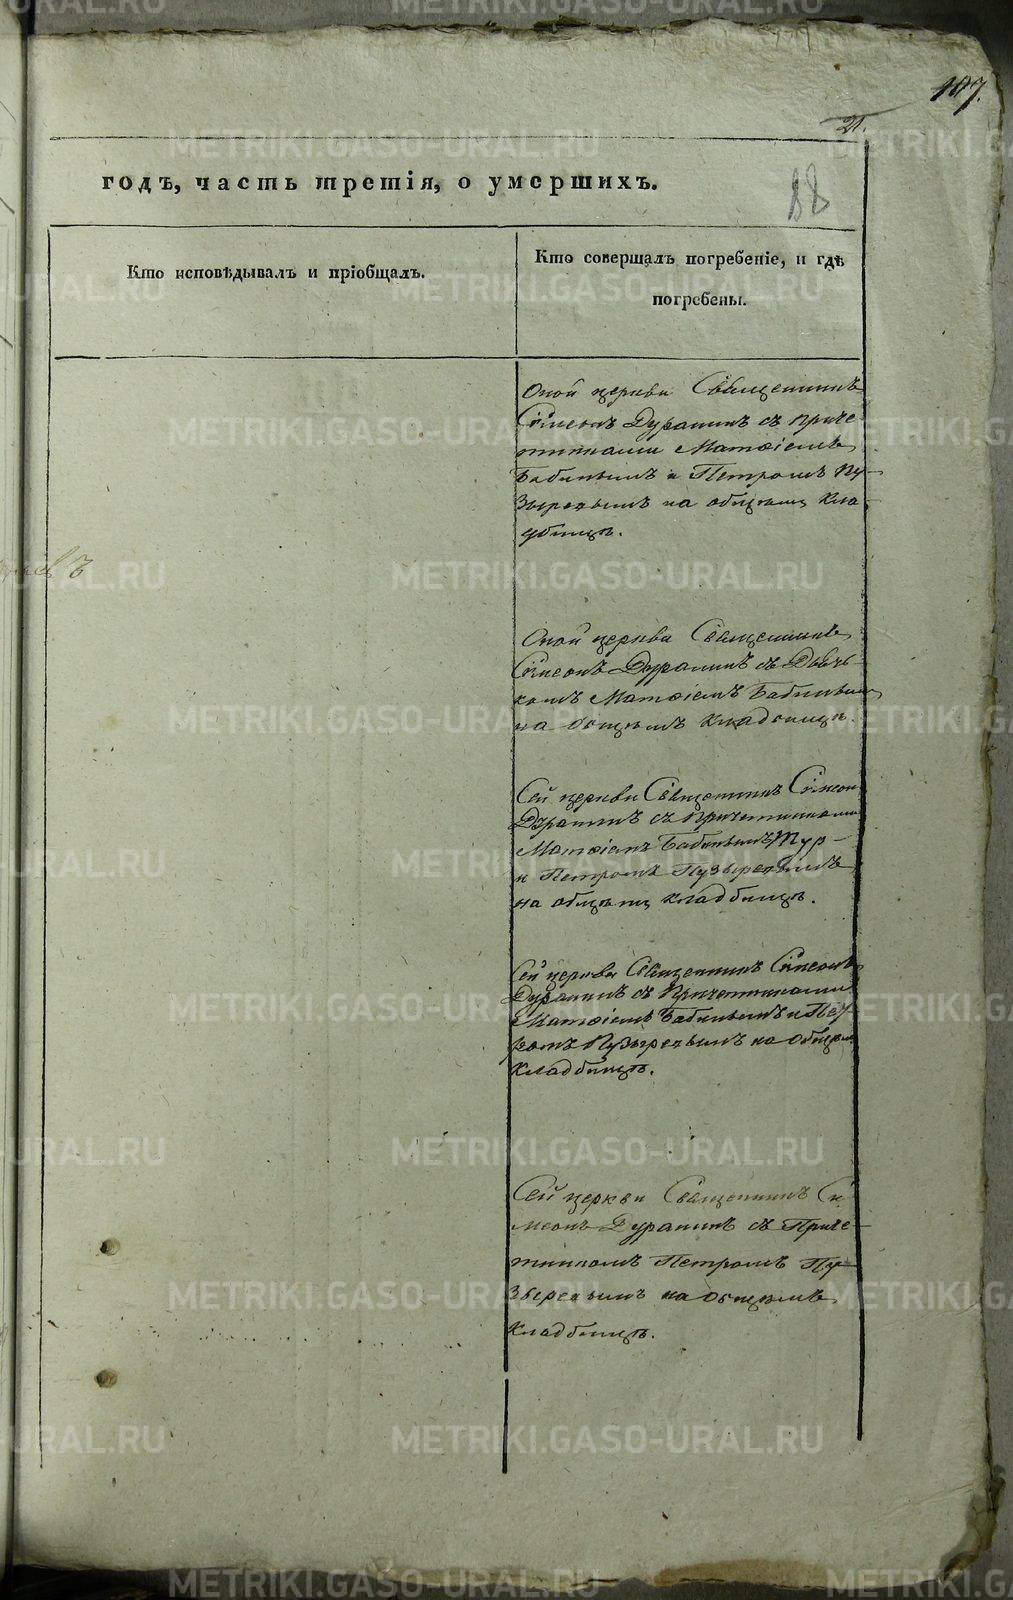 107.
21.
88
годъ, часть третія, о умершихъ.
Кто исповѣдывалъ и пріобщалъ.
Кто совершалъ погребеніе, и гдѣ
погребены.
Оной церкви Священникъ
Сѵмеонъ Дуранинъ съ приче-
тниками Матѳіемъ
Бабинымъ и Петромъ Пу-
зыревымъ на общемъ кла
дбищѣ.
Оной церкви Священникъ
Сѵмеонъ Дуранинъ съ Дьяч-
комъ Матѳіемъ Бабинымъ
на общемъ кладбищѣ.
Сей церкви Священникъ Сѵмеонъ
Дуранинъ съ Причетниками
Матѳіемъ Бабинымъ
и Петромъ Пузыревымъ
на общемъ кладбищѣ.
Сей церкви Священникъ Сѵмеонъ
Дуранинъ съ Причетниками
Матѳіемъ Бабинымъ и Пет-
ромъ Пузыревымъ на общемъ
кладбищѣ.
Сей церкви Священникъ Си
меонъ Дуранинъ съ Приче-
тникомъ Петромъ Пу-
зыревымъ на общемъ
кладбищѣ.
METRIKI.GASO-URAL.RU